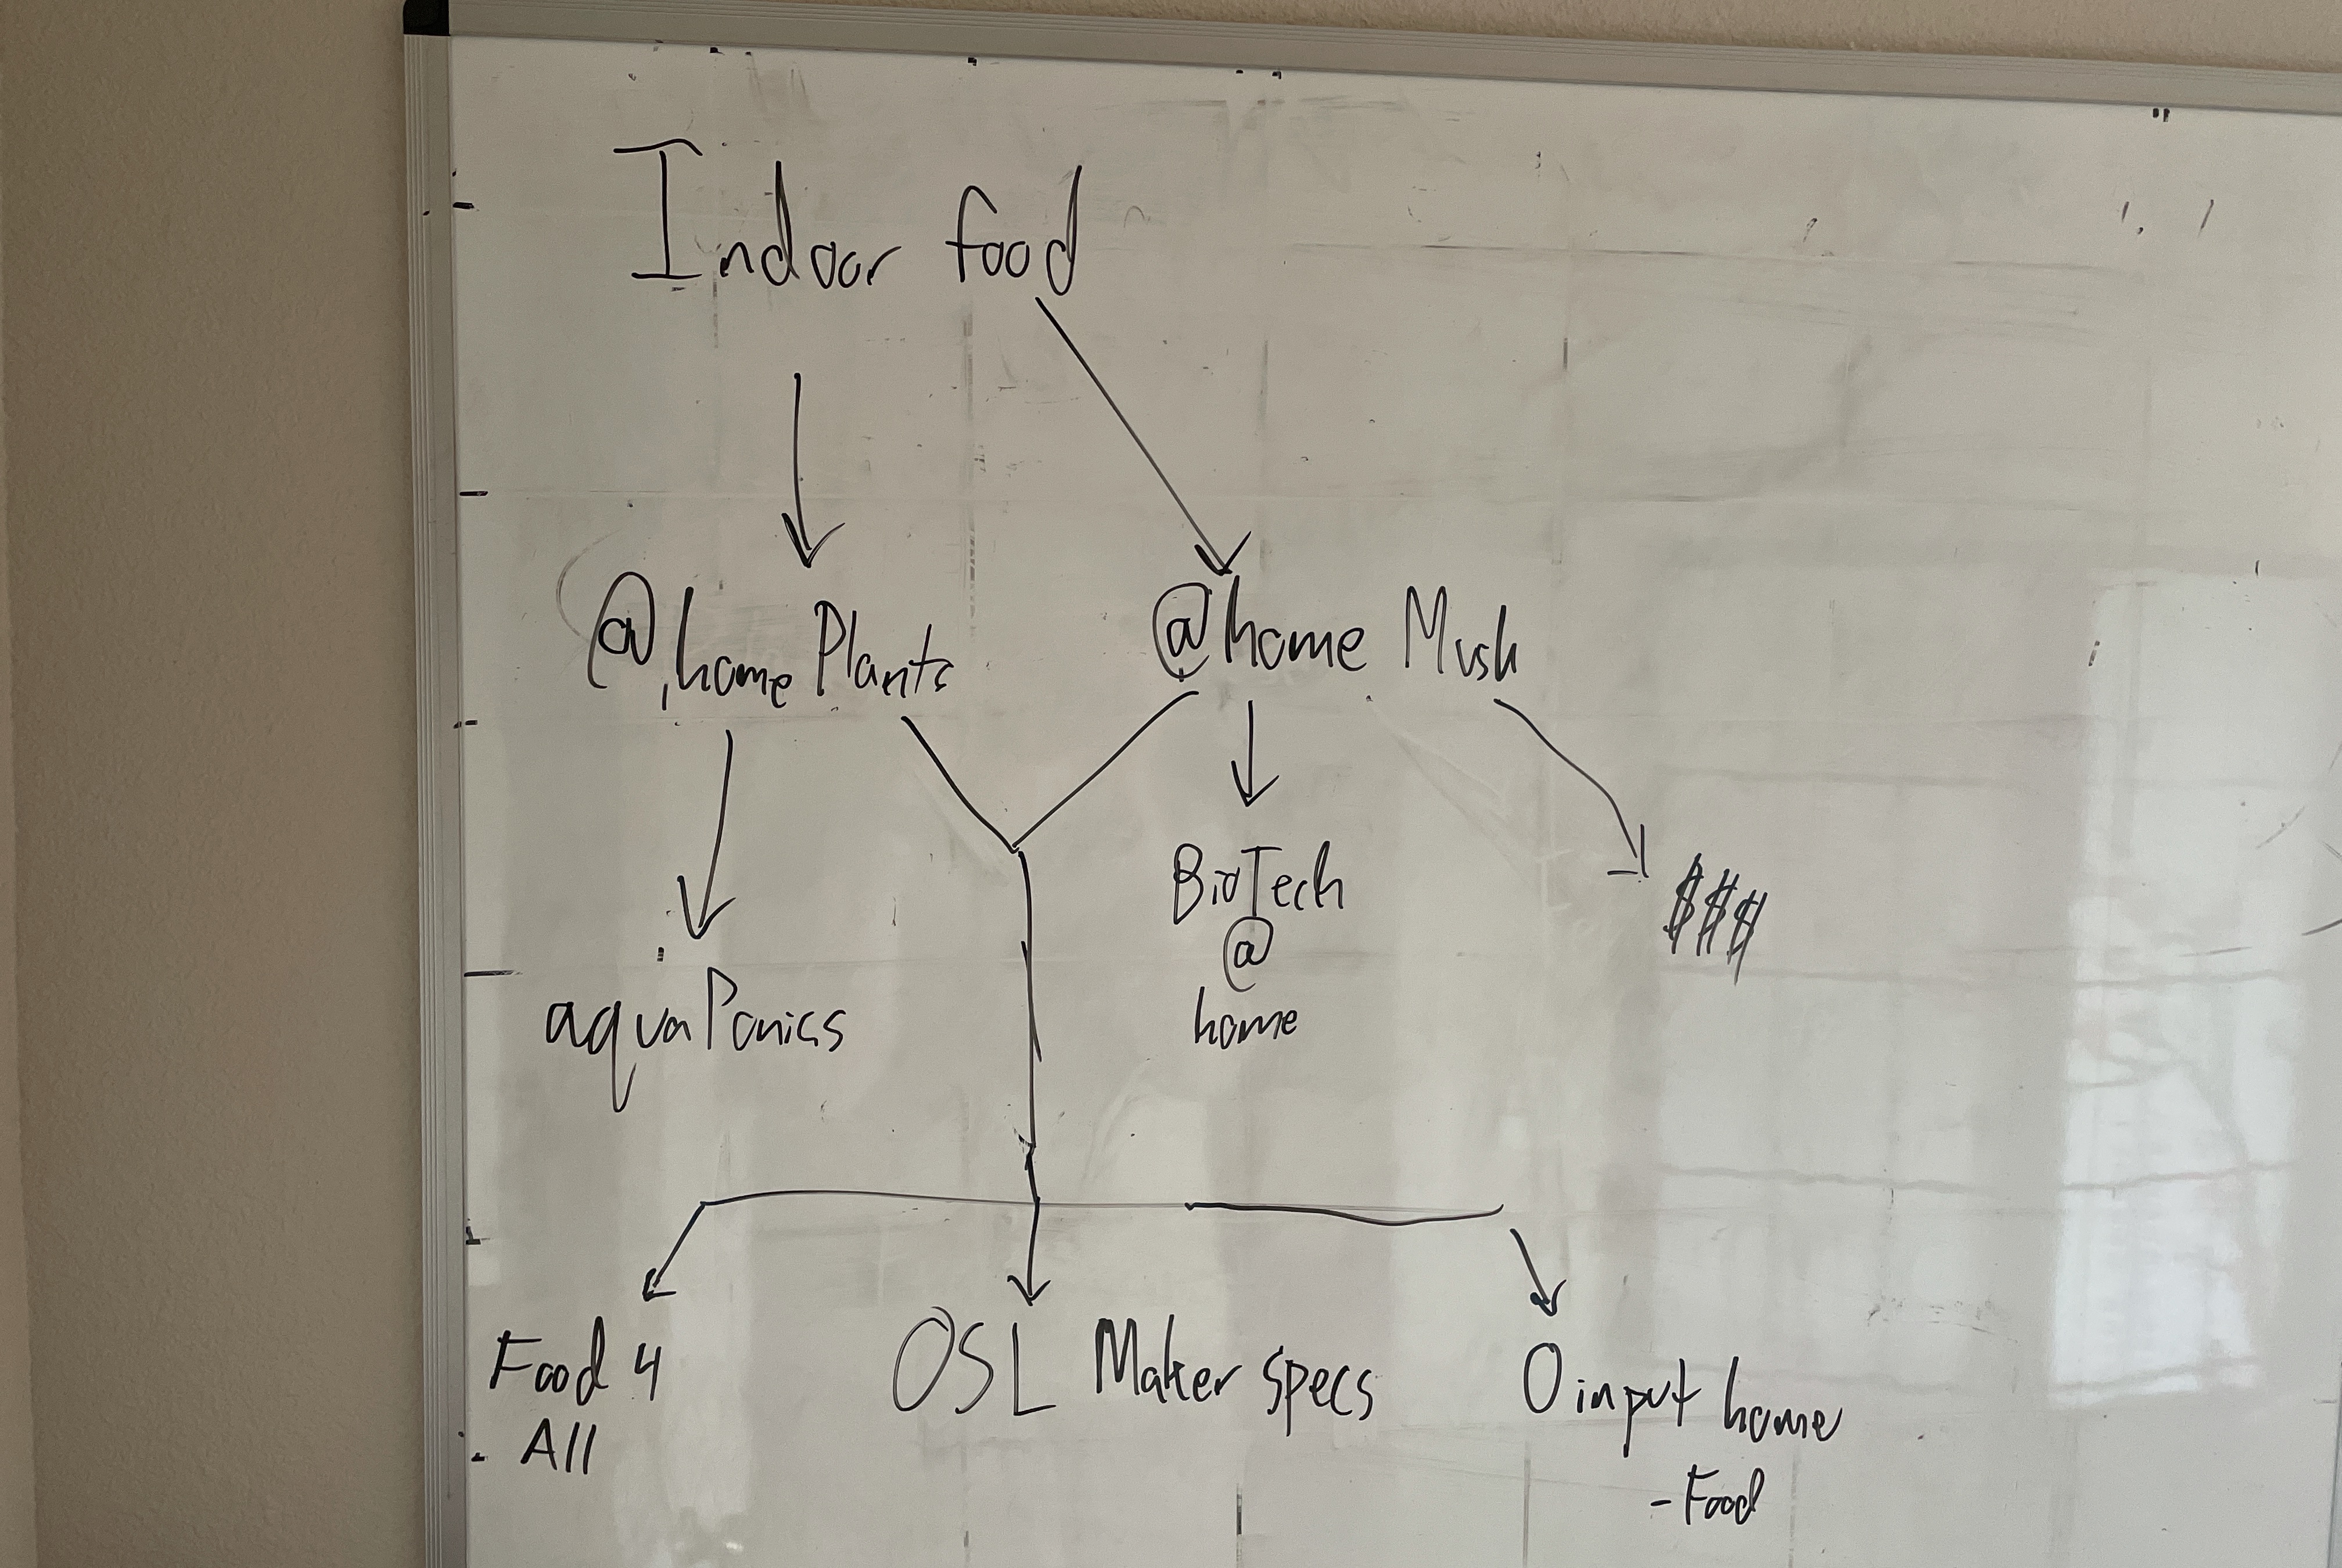 Indoor food
@home Plants
@home Mush
aquaPonics
BioTech
@
home
$$$
Food 4
All
OSL Maker specs
0 input home
- Food